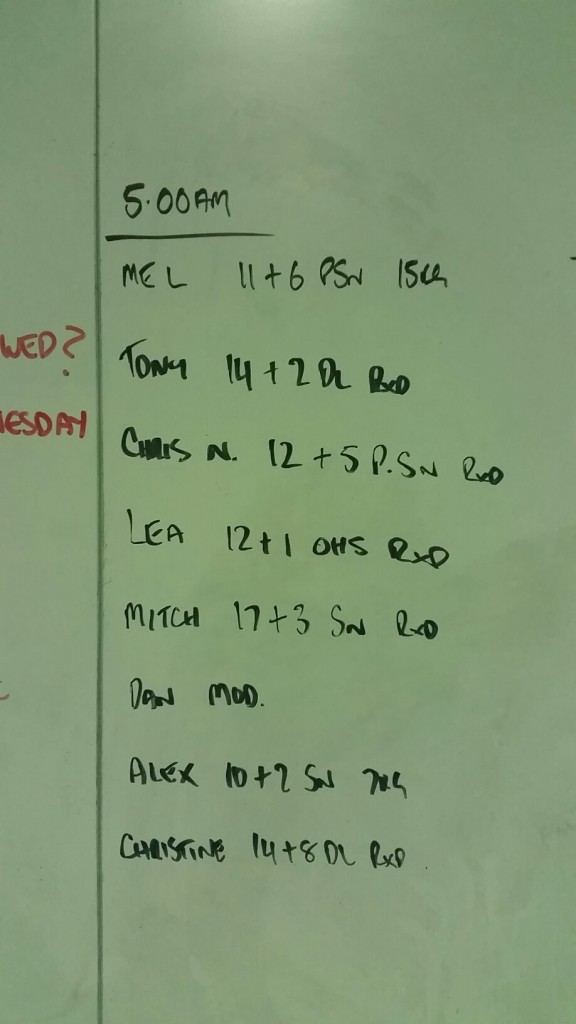 5.00AM
MEL 11+6 PSN 15KG
WED?
TONY 14+2 DL RXD
ESDAY
CHRIS N. 12+5 P.SN RXD
LEA 12+1 OHS RXD
MITCH 17+3 SN RXD
DAN MOD.
ALEX 10+2 SN 7KG
CHRISTINE 14+8 DL RXD